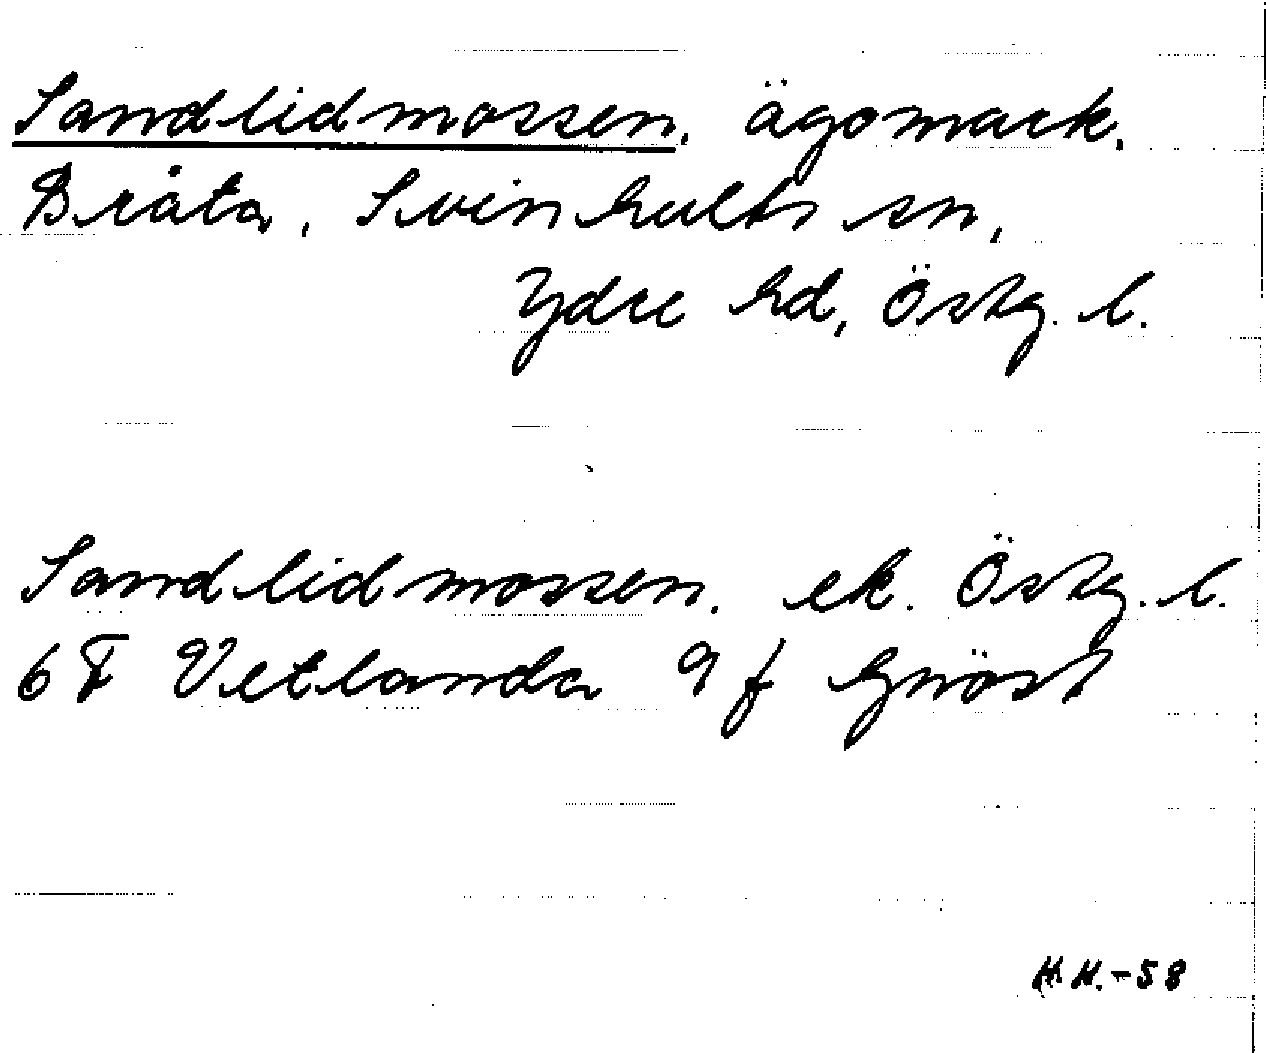 Sandlidmossen, ägomark.
Bråta, Svinhults sn,
Ydre hd, Östg. l.
Sandlidmossen. ek. Östg. l.
6 F Vetlanda 9 f Gnöst
H.H.-58